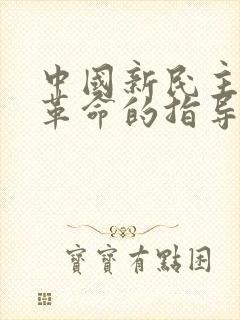 中國新民主
革命的指导
寶寶有點困